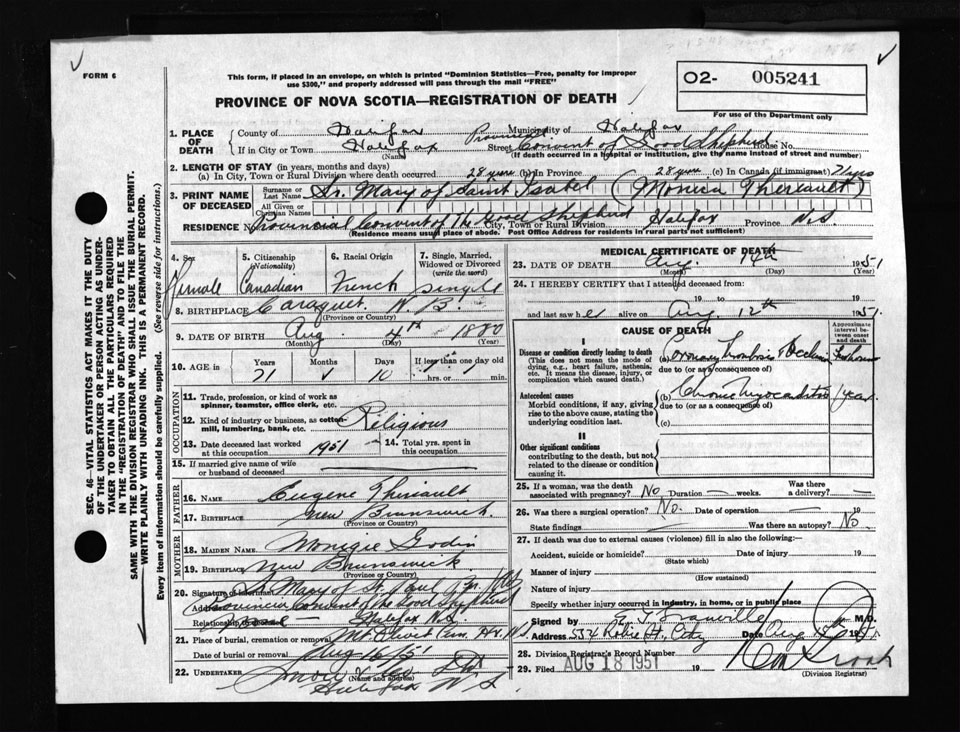 FORM 6
This form, if placed in an envelope, on which is printed "Dominion Statistics—Free, penalty for improper
use $300," and properly addressed will pass through the mail "FREE"
O2- 005241
For use of the Department only
PROVINCE OF NOVA SCOTIA—REGISTRATION OF DEATH
1. PLACE OF DEATH
County of Halifax Municipality of Halifax
If in City or Town Halifax (Name) Street Provincial Convent of Good Shepherd House No.
(If death occurred in a hospital or institution, give the name instead of street and number)
2. LENGTH OF STAY (in years, months and days)
(a) In City, Town or Rural Division where death occurred 28 years (b) In Province 28 years (c) In Canada (if immigrant) 71 yrs
3. PRINT NAME OF DECEASED
Surname or Last Name Sr. Mary of Saint Isabel (Monica Theriault)
All Given or Christian Names
RESIDENCE No. Provincial Convent of The Good Shepherd City, Town or Rural Division Halifax Province N.S.
(Residence means usual place of abode. Post Office Address for residents in rural parts not sufficient)
SEC. 46—VITAL STATISTICS ACT MAKES IT THE DUTY
OF THE UNDERTAKER OR PERSON ACTING AS UNDER-
TAKER TO OBTAIN ALL THE PARTICULARS REQUIRED
IN THE "REGISTRATION OF DEATH" AND TO FILE THE
SAME WITH THE DIVISION REGISTRAR WHO SHALL ISSUE THE BURIAL PERMIT.
WRITE PLAINLY WITH UNFADING INK. THIS IS A PERMANENT RECORD.
Every item of information should be carefully supplied. (See reverse side for instructions.)
4. Sex 5. Citizenship (Nationality) 6. Racial Origin 7. Single, Married, Widowed or Divorced (write the word)
Female Canadian French Single
8. BIRTHPLACE Caraquet N.B.
(Province or Country)
9. DATE OF BIRTH Aug 4th 1880
(Month) (Day) (Year)
10. AGE in Years Months Days If less than one day old
71 10 hrs. or min.
OCCUPATION
11. Trade, profession, or kind of work as
spinner, teamster, office clerk, etc.
12. Kind of industry or business, as cotton-
mill, lumbering, bank, etc. Religious
13. Date deceased last worked at this occupation 1951 14. Total yrs. spent in this occupation
15. If married give name of wife
or husband of deceased
FATHER
16. NAME Eugene Theriault
17. BIRTHPLACE New Brunswick
(Province or Country)
MOTHER
18. MAIDEN NAME Godin
19. BIRTHPLACE New Brunswick
(Province or Country)
20. Signature of informant Sr Mary of St. Paul
Address Provincial Convent of the Good Shepherd
Relationship Halifax N.S.
21. Place of burial, cremation or removal Mt. Olivet Cem. Hx. N.S.
Date of burial or removal Aug 16/51
22. UNDERTAKER Snow & Co
(Name and address)
Halifax N.S.
MEDICAL CERTIFICATE OF DEATH
23. DATE OF DEATH Aug 14th 1951
(Month) (Day) (Year)
24. I HEREBY CERTIFY that I attended deceased from:
19 to 19
and last saw her alive on Aug. 12th 1951.
CAUSE OF DEATH
Approximate interval between onset and death
I
Disease or condition directly leading to death
(This does not mean the mode of
dying, e.g., heart failure, asthenia,
etc. It means the disease, injury, or
complication which caused death.)
(a) Coronary Thrombosis &
due to (or as a consequence of)
Antecedent causes
Morbid conditions, if any, giving
rise to the above cause, stating the
underlying condition last.
(b) Chronic Myocarditis 1 year
due to (or as a consequence of)
(c)
II
Other significant conditions
contributing to the death, but not
related to the disease or condition
causing it.
25. If a woman, was the death associated with pregnancy? No Duration — weeks. Was there a delivery? —
26. Was there a surgical operation? No. Date of operation — 19
State findings — Was there an autopsy? No.
27. If death was due to external causes (violence) fill in also the following:
Accident, suicide or homicide? Date of injury 19
(State which)
Manner of injury
(How sustained)
Nature of injury
Specify whether injury occurred in industry, in home, or in public place
Signed by Granville M.D.
Address 534 Robie St. City Date Aug 1951.
28. Division Registrar's Record Number
29. Filed AUG 18 1951 29.
(Division Registrar)